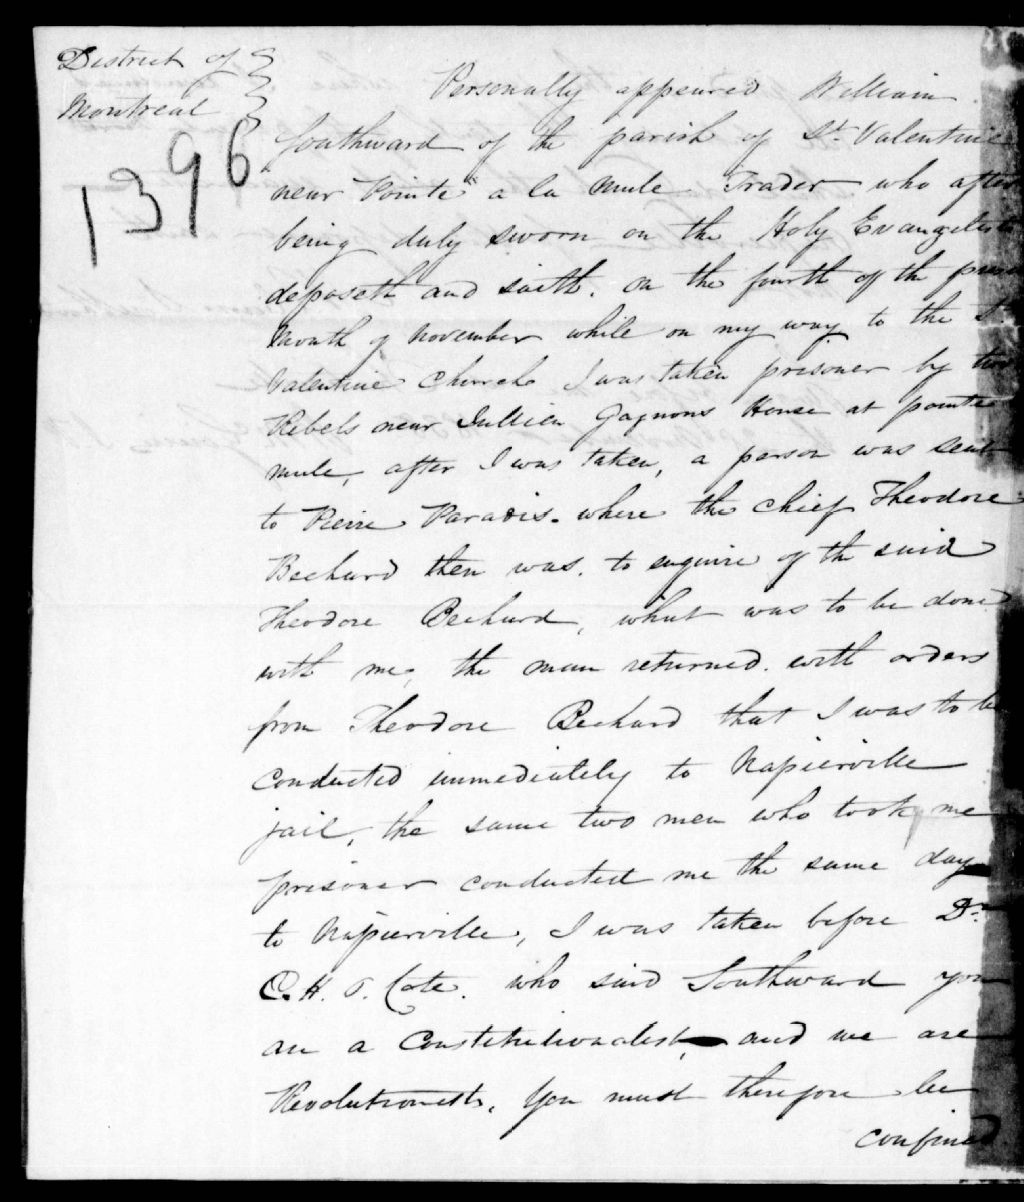 District of
Montreal
1396
Personally appeared William
Southward of the parish of St. Valentine
near Pointe a la Mule Trader who after
being duly sworn on the Holy Evangelists
deposeth and saith. on the fourth of the
Month of November while on my way to the St
Valentine Church I was taken prisoner by two
Rebels near Jullien Gagnons House at pointe
mule, after I was taken, a person was sent
to Pierre Paradis. where the chief Theodore
Bechard then was. to enquire of the said
Theodore Bechard, what was to be done
with me, the man returned. with orders
from Theodore Bechard that I was to be
conducted immediately to Napierville
jail, the same two men who took me
prisoner conducted me the same day
to Napierville, I was taken before Dr
C. H. O. Cote. who said Southward you
are a Constitutionalist, and we are
Revolutionests. You must therefore be
confined